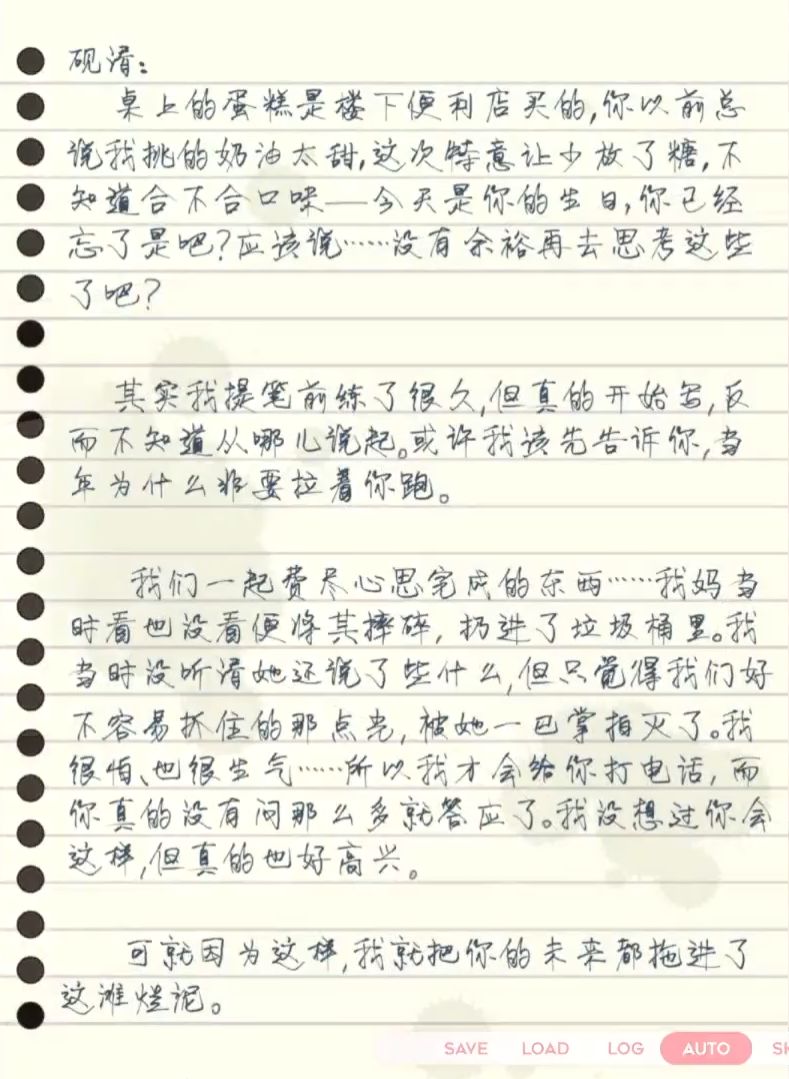 砚清：
桌上的蛋糕是楼下便利店买的,你以前总
说我挑的奶油太甜,这次特意让少放了糖,不
知道合不合口味——今天是你的生日,你已经
忘了是吧?应该说……没有余裕再去思考这些
了吧?
其实我提笔前练了很久,但真的开始写,反
而不知道从哪儿说起。或许我该先告诉你,当
年为什么非要拉着你跑。
我们一起费尽心思完成的东西……我妈当
时看也没看便将其摔碎，扔进了垃圾桶里。我
当时没听清她还说了些什么,但只觉得我们好
不容易抓住的那点光,被她一巴掌拍灭了。我
很怕、也很生气……所以我才会给你打电话,而
你真的没有问那么多就答应了。我没想过你会
这样,但真的也好高兴。
可就因为这样,我就把你的未来都拖进了
这滩烂泥。
SAVE LOAD LOG AUTO SK